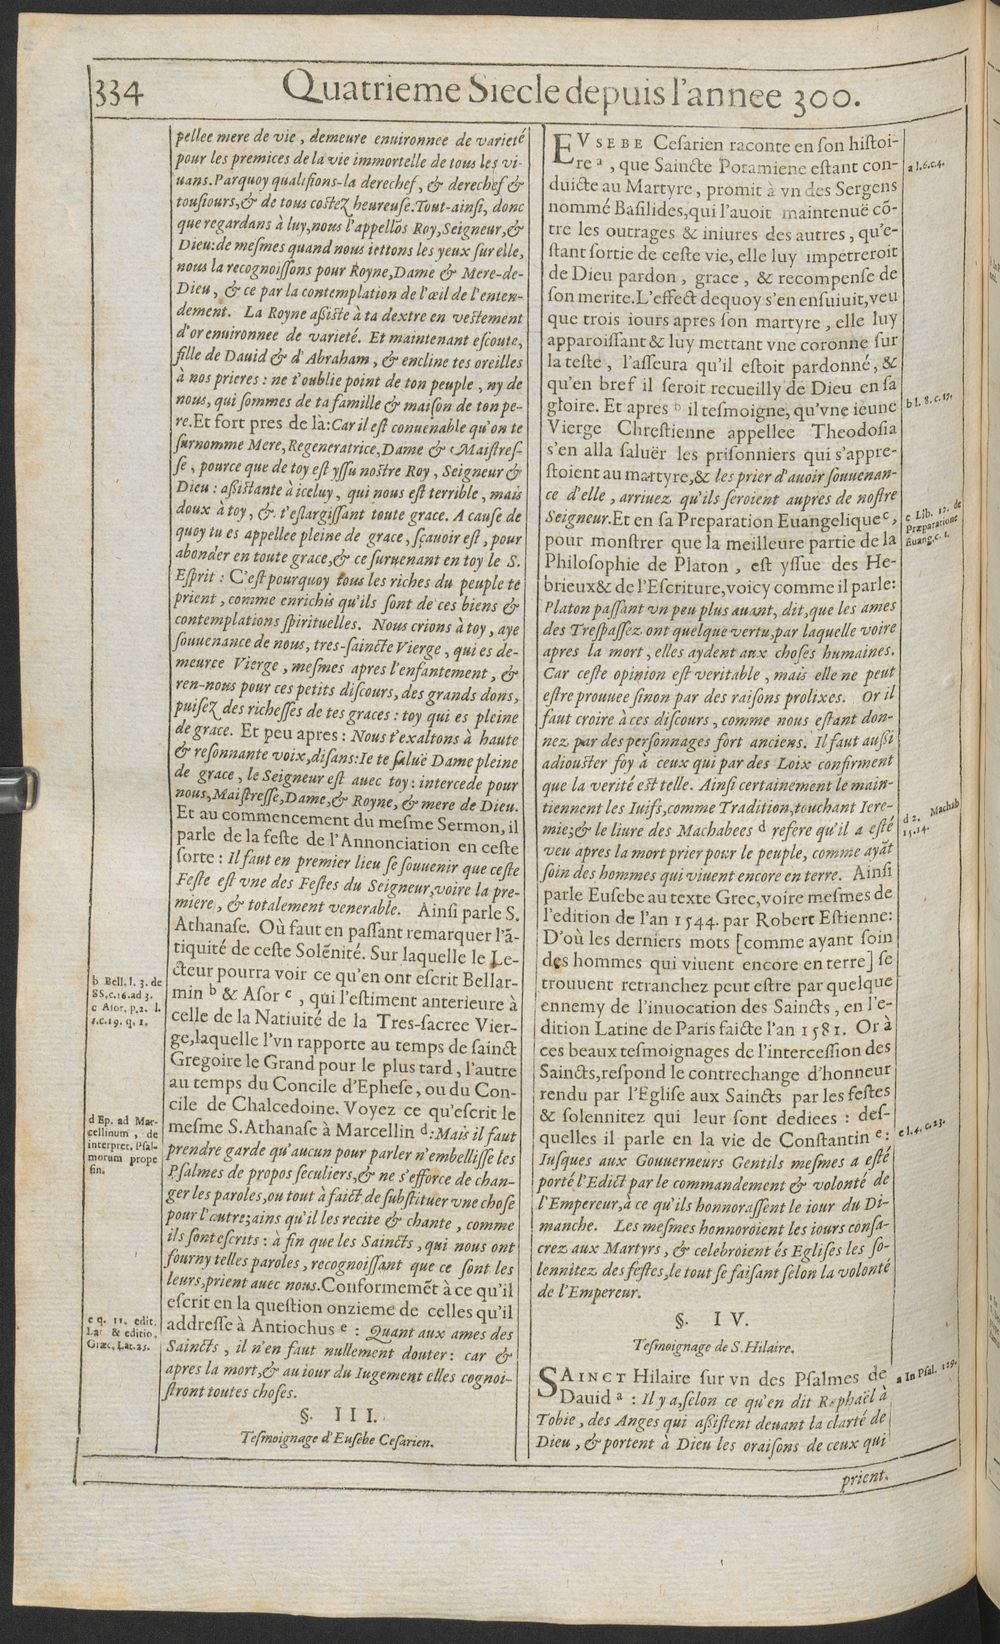 334
Quatrieme Siecle depuis l'annee 300.
pellee mere de vie, demeure enuironnee de varieté
pour les premices de la vie immortelle de tous les vi-
uans. Parquoy qualifions-la derechef, & derechef &
tousiours, & de tous costez heureuse. Tout-ainsi, donc
que regardans à luy, nous l'appellõs Roy, Seigneur, &
Dieu: de mesmes quand nous iettons les yeux sur elle,
nous la recognoissons pour Royne, Dame & Mere-de-
Dieu, & ce par la contemplation de l'œil de l'enten-
dement. La Royne assiste à ta dextre en vestement
d'or enuironnee de varieté. Et maintenant escoute,
fille de Dauid & d'Abraham, & encline tes oreilles
à nos prieres: ne t'oublie point de ton peuple, ny de
nous, qui sommes de ta famille & maison de ton pe-
re. Et fort pres de là: Car il est conuenable qu'on te
surnomme Mere, Regeneratrice, Dame & Maistres-
se, pource que de toy est yssu nostre Roy, Seigneur &
Dieu: assistante à iceluy, qui nous est terrible, mais
doux à toy, & t'eslargissant toute grace. A cause de
quoy tu es appellee pleine de grace, sçauoir est, pour
abonder en toute grace, & ce suruenant en toy le S.
Esprit: C'est pourquoy tous les riches du peuple te
prient, comme enrichis qu'ils sont de ces biens &
contemplations spirituelles. Nous crions à toy, aye
souuenance de nous, tres-saincte Vierge, qui es de-
meuree Vierge, mesmes apres l'enfantement, &
ren-nous pour ces petits discours, des grands dons,
puisez des richesses de tes graces: toy qui es pleine
de grace. Et peu apres: Nous t'exaltons à haute
& resonnante voix, disans: Ie te saluë Dame pleine
de grace, le Seigneur est auec toy: intercede pour
nous, Maistresse, Dame, & Royne, & mere de Dieu.
Et au commencement du mesme Sermon, il
parle de la feste de l'Annonciation en ceste
sorte: Il faut en premier lieu se souuenir que ceste
Feste est vne des Festes du Seigneur, voire la pre-
miere, & totalement venerable. Ainsi parle S.
Athanase. Où faut en passant remarquer l'ã-
tiquité de ceste Solẽnité. Sur laquelle le Le-
cteur pourra voir ce qu'en ont escrit Bellar-
min b & Asor c, qui l'estiment anterieure à
celle de la Natiuité de la Tres-sacree Vier-
ge, laquelle l'vn rapporte au temps de sainct
Gregoire le Grand pour le plus tard, l'autre
au temps du Concile d'Ephese, ou du Con-
cile de Chalcedoine. Voyez ce qu'escrit le
mesme S. Athanase à Marcellin d: Mais il faut
prendre garde qu'aucun pour parler n'embellisse les
Psalmes de propos seculiers, & ne s'efforce de chan-
ger les paroles, ou tout à faict de substituer vne chose
pour l'autre; ains qu'il les recite & chante, comme
ils sont escrits: à fin que les Saincts, qui nous ont
fourny telles paroles, recognoissant que ce sont les
leurs, prient auec nous. Conformemẽt à ce qu'il
escrit en la question onzieme de celles qu'il
addresse à Antiochus e: Quant aux ames des
Saincts, il n'en faut nullement douter: car &
apres la mort, & au iour du Iugement elles cognoi-
stront toutes choses.
§. III.
Tesmoignage d'Eusebe Cesarien.
b Bell. l. 3. de
SS. c. 16. ad 3.
c Asor. p. 2. l.
1. c. 19. q. 1.
d Ep. ad Mar-
cellinum, de
interpret. Psal-
morum prope
fin.
e q. 11. edit.
Lat & editio.
Græc. Lat. 25.
EVSEBE Cesarien raconte en son histoi-
re a, que Saincte Potamiene estant con-
duicte au Martyre, promit à vn des Sergens
nommé Basilides, qui l'auoit maintenuë cõ-
tre les outrages & iniures des autres, qu'e-
stant sortie de ceste vie, elle luy impetreroit
de Dieu pardon, grace, & recompense de
son merite. L'effect dequoy s'en ensuiuit, veu
que trois iours apres son martyre, elle luy
apparoissant & luy mettant vne coronne sur
la teste, l'asseura qu'il estoit pardonné, &
qu'en bref il seroit recueilly de Dieu en sa
gloire. Et apres b il tesmoigne, qu'vne ieune
Vierge Chrestienne appellee Theodosia
s'en alla saluër les prisonniers qui s'appre-
stoient au martyre, & les prier d'auoir souuenan-
ce d'elle, arriuez qu'ils seroient aupres de nostre
Seigneur. Et en sa Preparation Euangelique c,
pour monstrer que la meilleure partie de la
Philosophie de Platon, est yssue des He-
brieux & de l'Escriture, voicy comme il parle:
Platon passant vn peu plus auant, dit, que les ames
des Trespassez ont quelque vertu, par laquelle voire
apres la mort, elles aydent aux choses humaines.
Car ceste opinion est veritable, mais elle ne peut
estre prouuee sinon par des raisons prolixes. Or il
faut croire à ces discours, comme nous estant don-
nez par des personnages fort anciens. Il faut aussi
adiouster foy à ceux qui par des Loix confirment
que la verité est telle. Ainsi certainement le main-
tiennent les Iuifs, comme Tradition, touchant Iere-
mie; & le liure des Machabees d refere qu'il a esté
veu apres la mort prier pour le peuple, comme ayãt
soin des hommes qui viuent encore en terre. Ainsi
parle Eusebe au texte Grec, voire mesmes de
l'edition de l'an 1544. par Robert Estienne:
D'où les derniers mots [comme ayant soin
des hommes qui viuent encore en terre] se
trouuent retranchez peut estre par quelque
ennemy de l'inuocation des Saincts, en l'e-
dition Latine de Paris faicte l'an 1581. Or à
ces beaux tesmoignages de l'intercession des
Saincts, respond le contrechange d'honneur
rendu par l'Eglise aux Saincts par les festes
& solennitez qui leur sont dediees: des-
quelles il parle en la vie de Constantin e:
Iusques aux Gouuerneurs Gentils mesmes a esté
porté l'Edict par le commandement & volonté de
l'Empereur, à ce qu'ils honnorassent le iour du Di-
manche. Les mesmes honnoroient les iours consa-
crez aux Martyrs, & celebroient és Eglises les so-
lennitez des festes, le tout se faisant selon la volonté
de l'Empereur.
§. IV.
Tesmoignage de S. Hilaire.
SAINCT Hilaire sur vn des Psalmes de
Dauid a: Il y a, selon ce qu'en dit Raphaël à
Tobie, des Anges qui assistent deuant la clarté de
Dieu, & portent à Dieu les oraisons de ceux qui
prient.
a l. 6. c. 4.
b l. 8. c. 17.
c Lib. 12. de
Præparatione
Euang. c. 1.
d 2. Machab
15. 14.
e l. 4. c. 23.
a In Psal. 129.